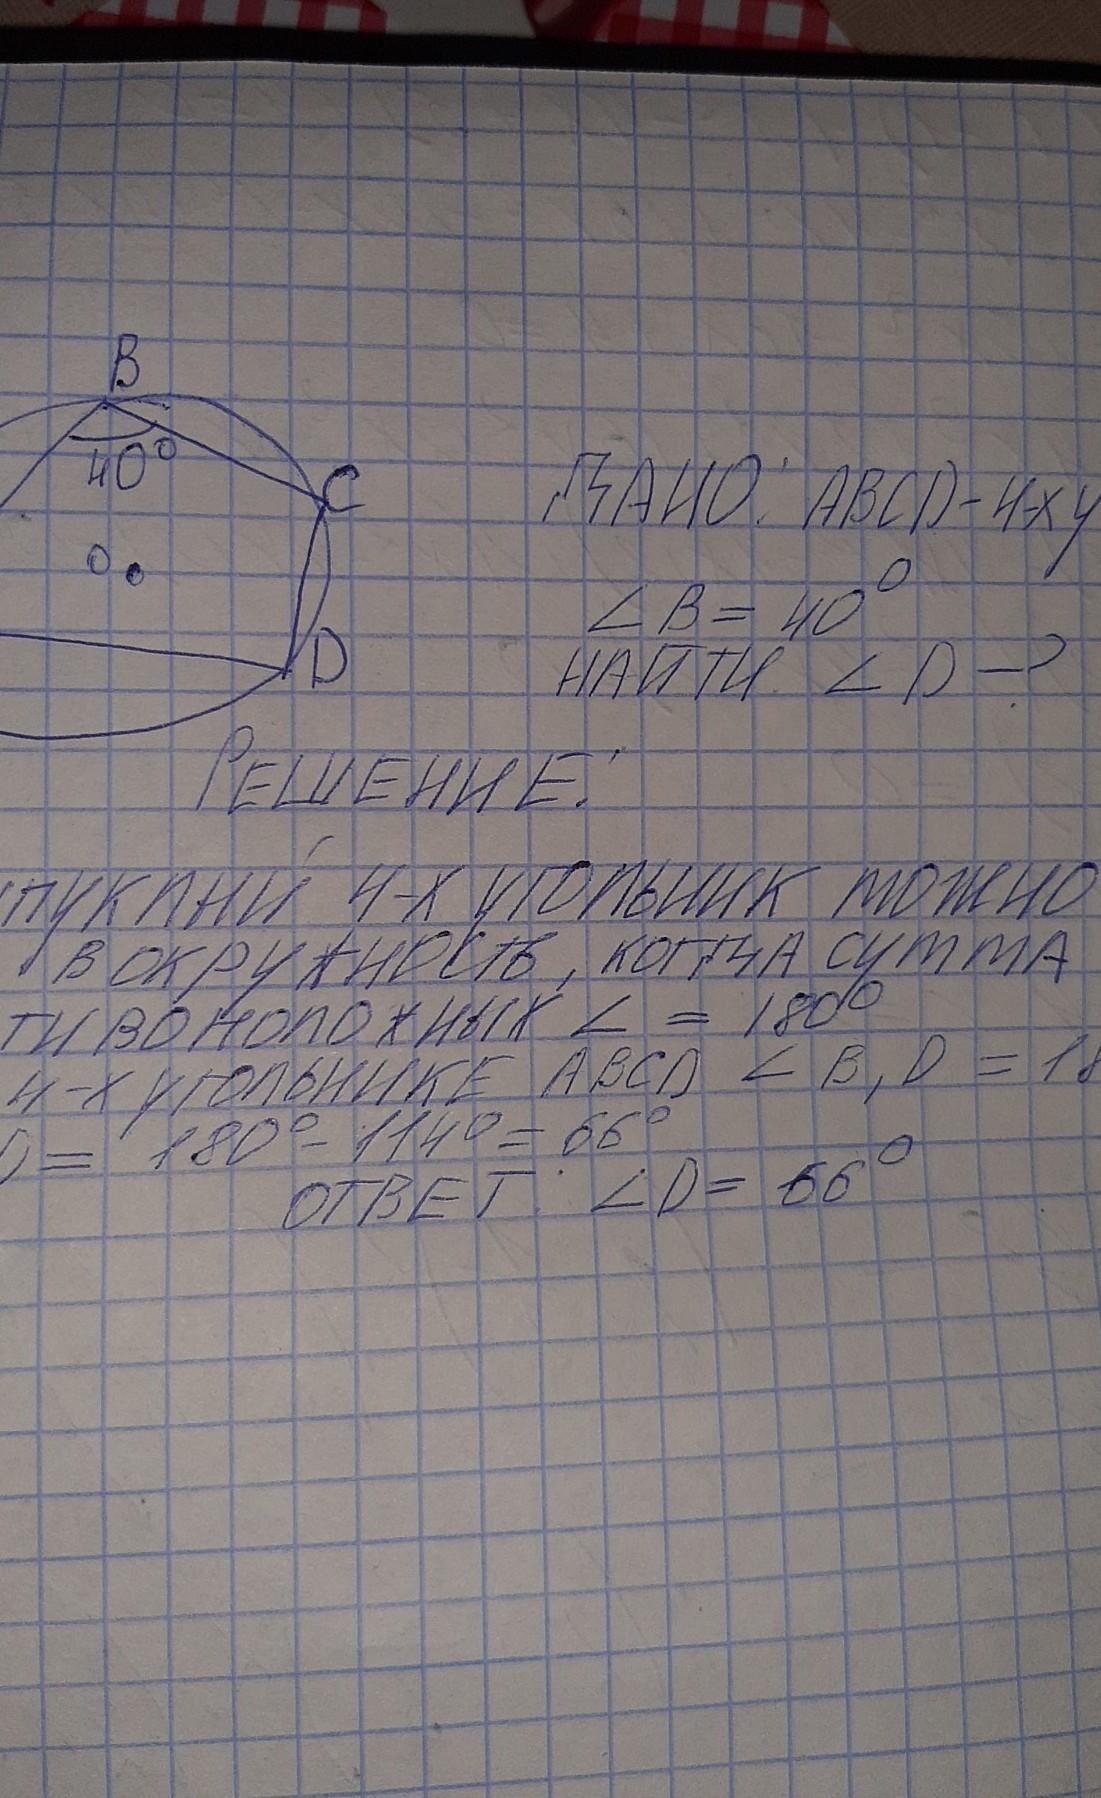 B
40°
C
O
D
ДАНО: ABCD-4-х у
∠B = 40°
НАЙТИ. ∠D -?
РЕШЕНИЕ:
ПУКЛЫЙ 4-Х УГОЛЬНИК МОЖНО
В ОКРУЖНОСТЬ, КОГДА СУММА
ТИВОПОЛОЖНЫХ ∠ = 180°
4-Х УГОЛЬНИКЕ ABCD ∠B,D = 18
D = 180° - 114° = 66°
ОТВЕТ: ∠D = 66°